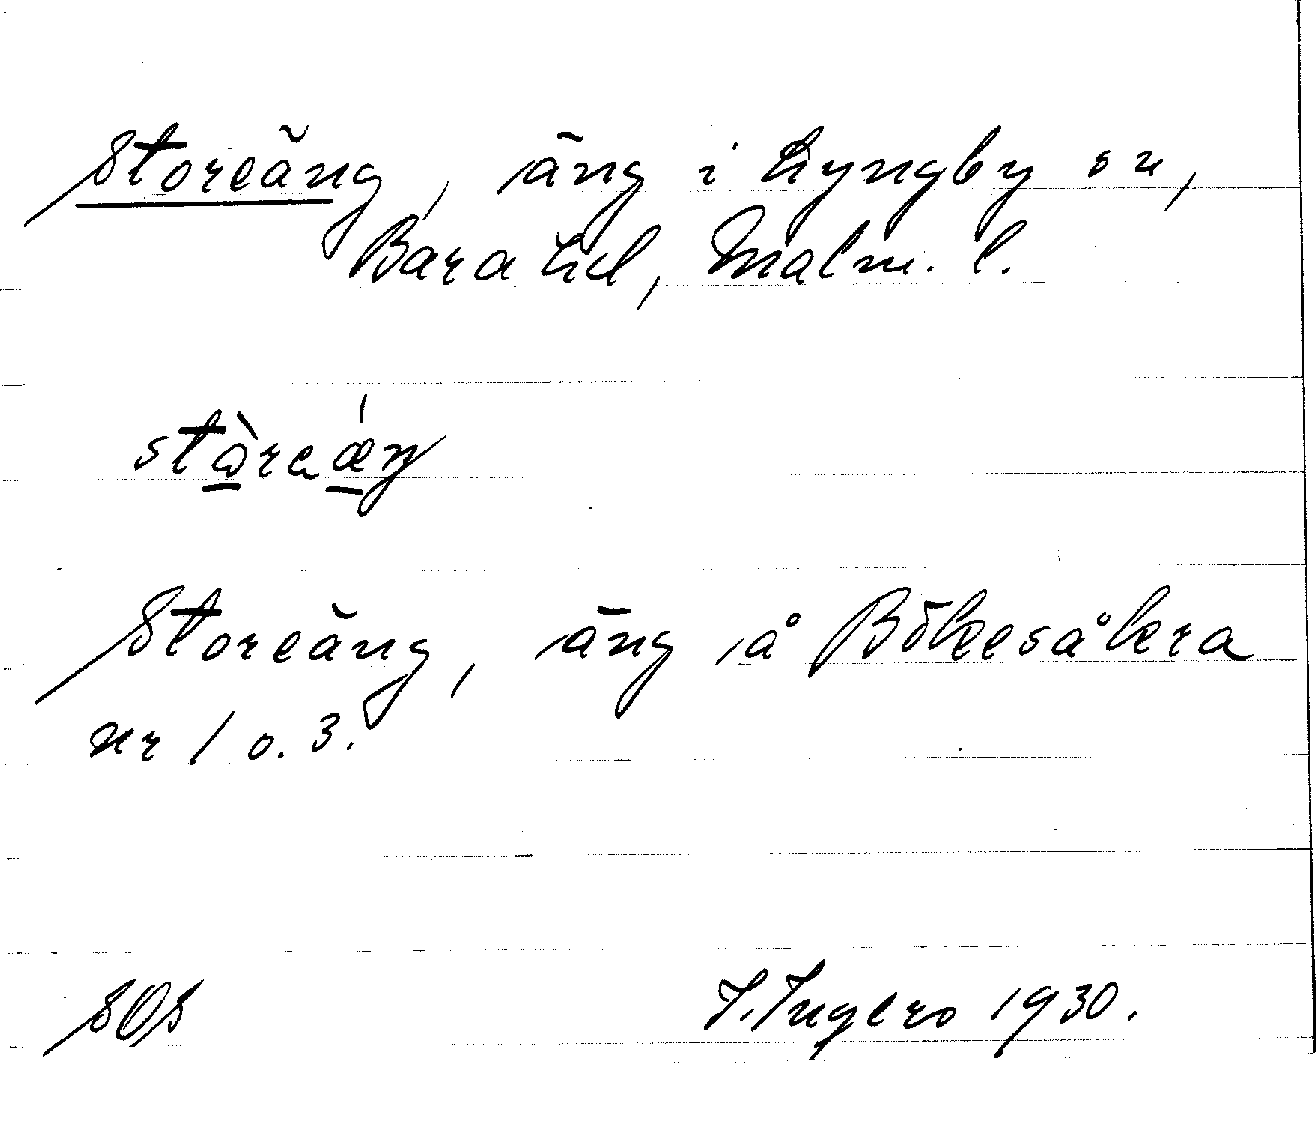 Storeäng, äng i Lyngby sn,
Bara hd, Malm. l.
stòreǽŋ
Storeäng, äng å Bökesåkra
nr 1 o. 3.
SOS
I. Ingers 1930.